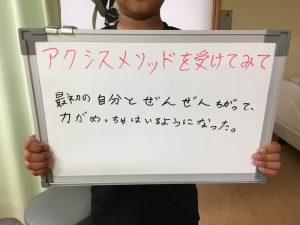 アクシスメソッドを受けてみて
最初の自分とぜんぜんちがって、
力がめっちゃはいるようになった。